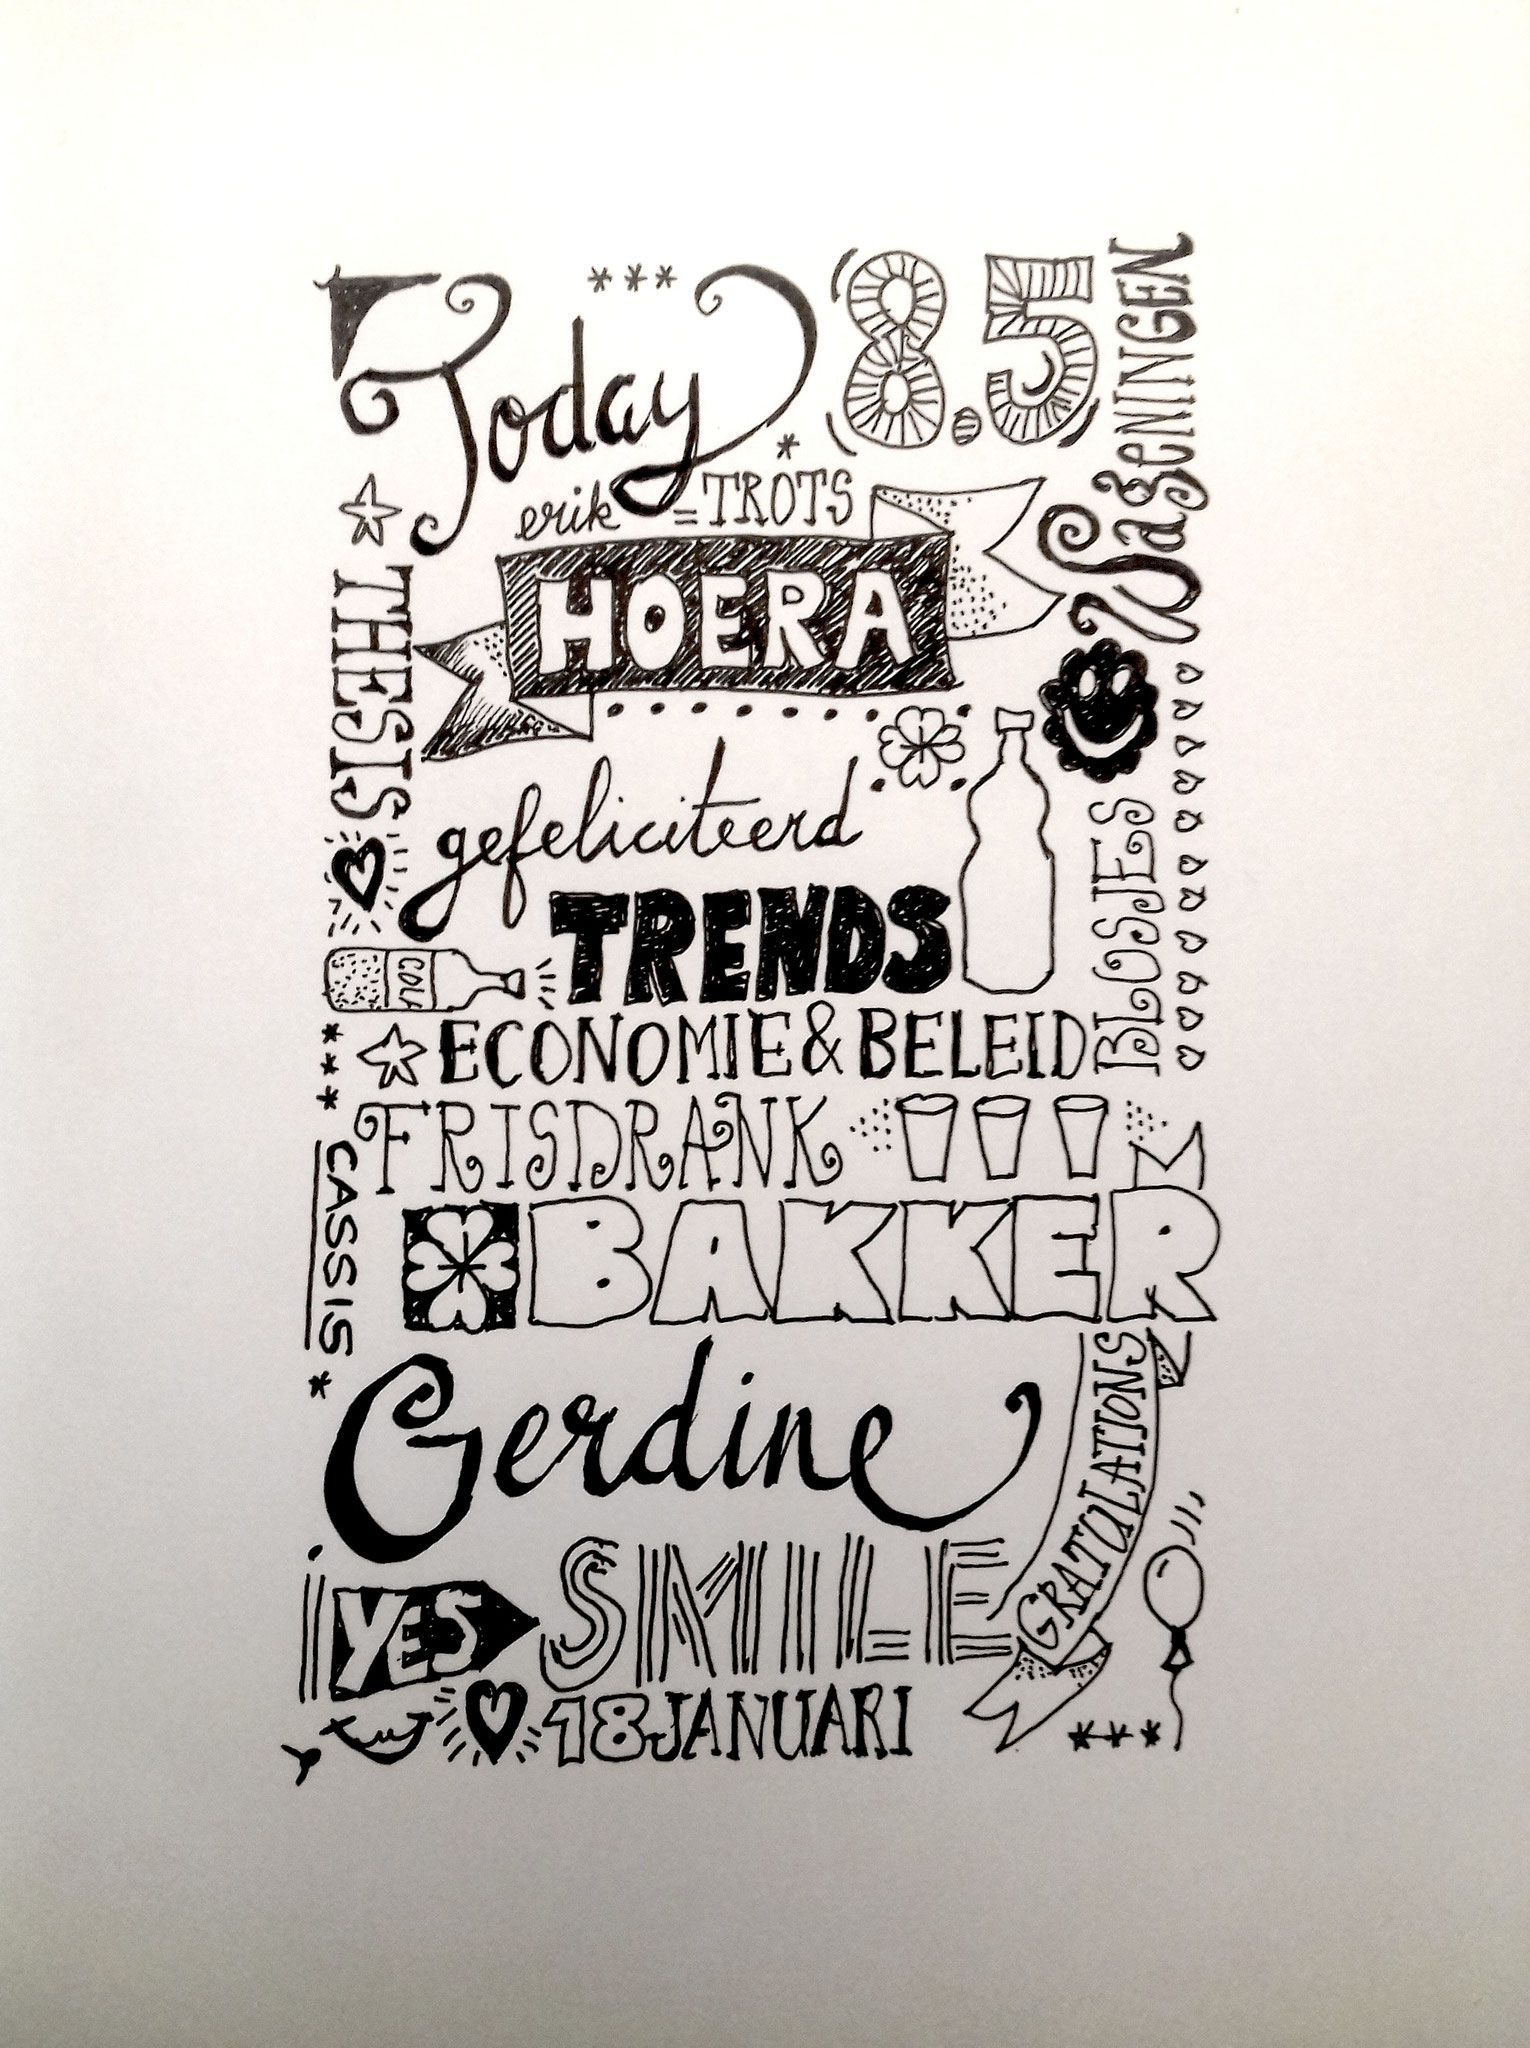 Today
8.5
Wageningen
erik = TROTS
HOERA
THESIS
gefeliciteerd
TRENDS
BLOSJES
COLA
ECONOMIE & BELEID
FRISDRANK
CASSIS
BAKKER
Gerdine
GRATULATIONS
YES
SMILE
18 JANUARI